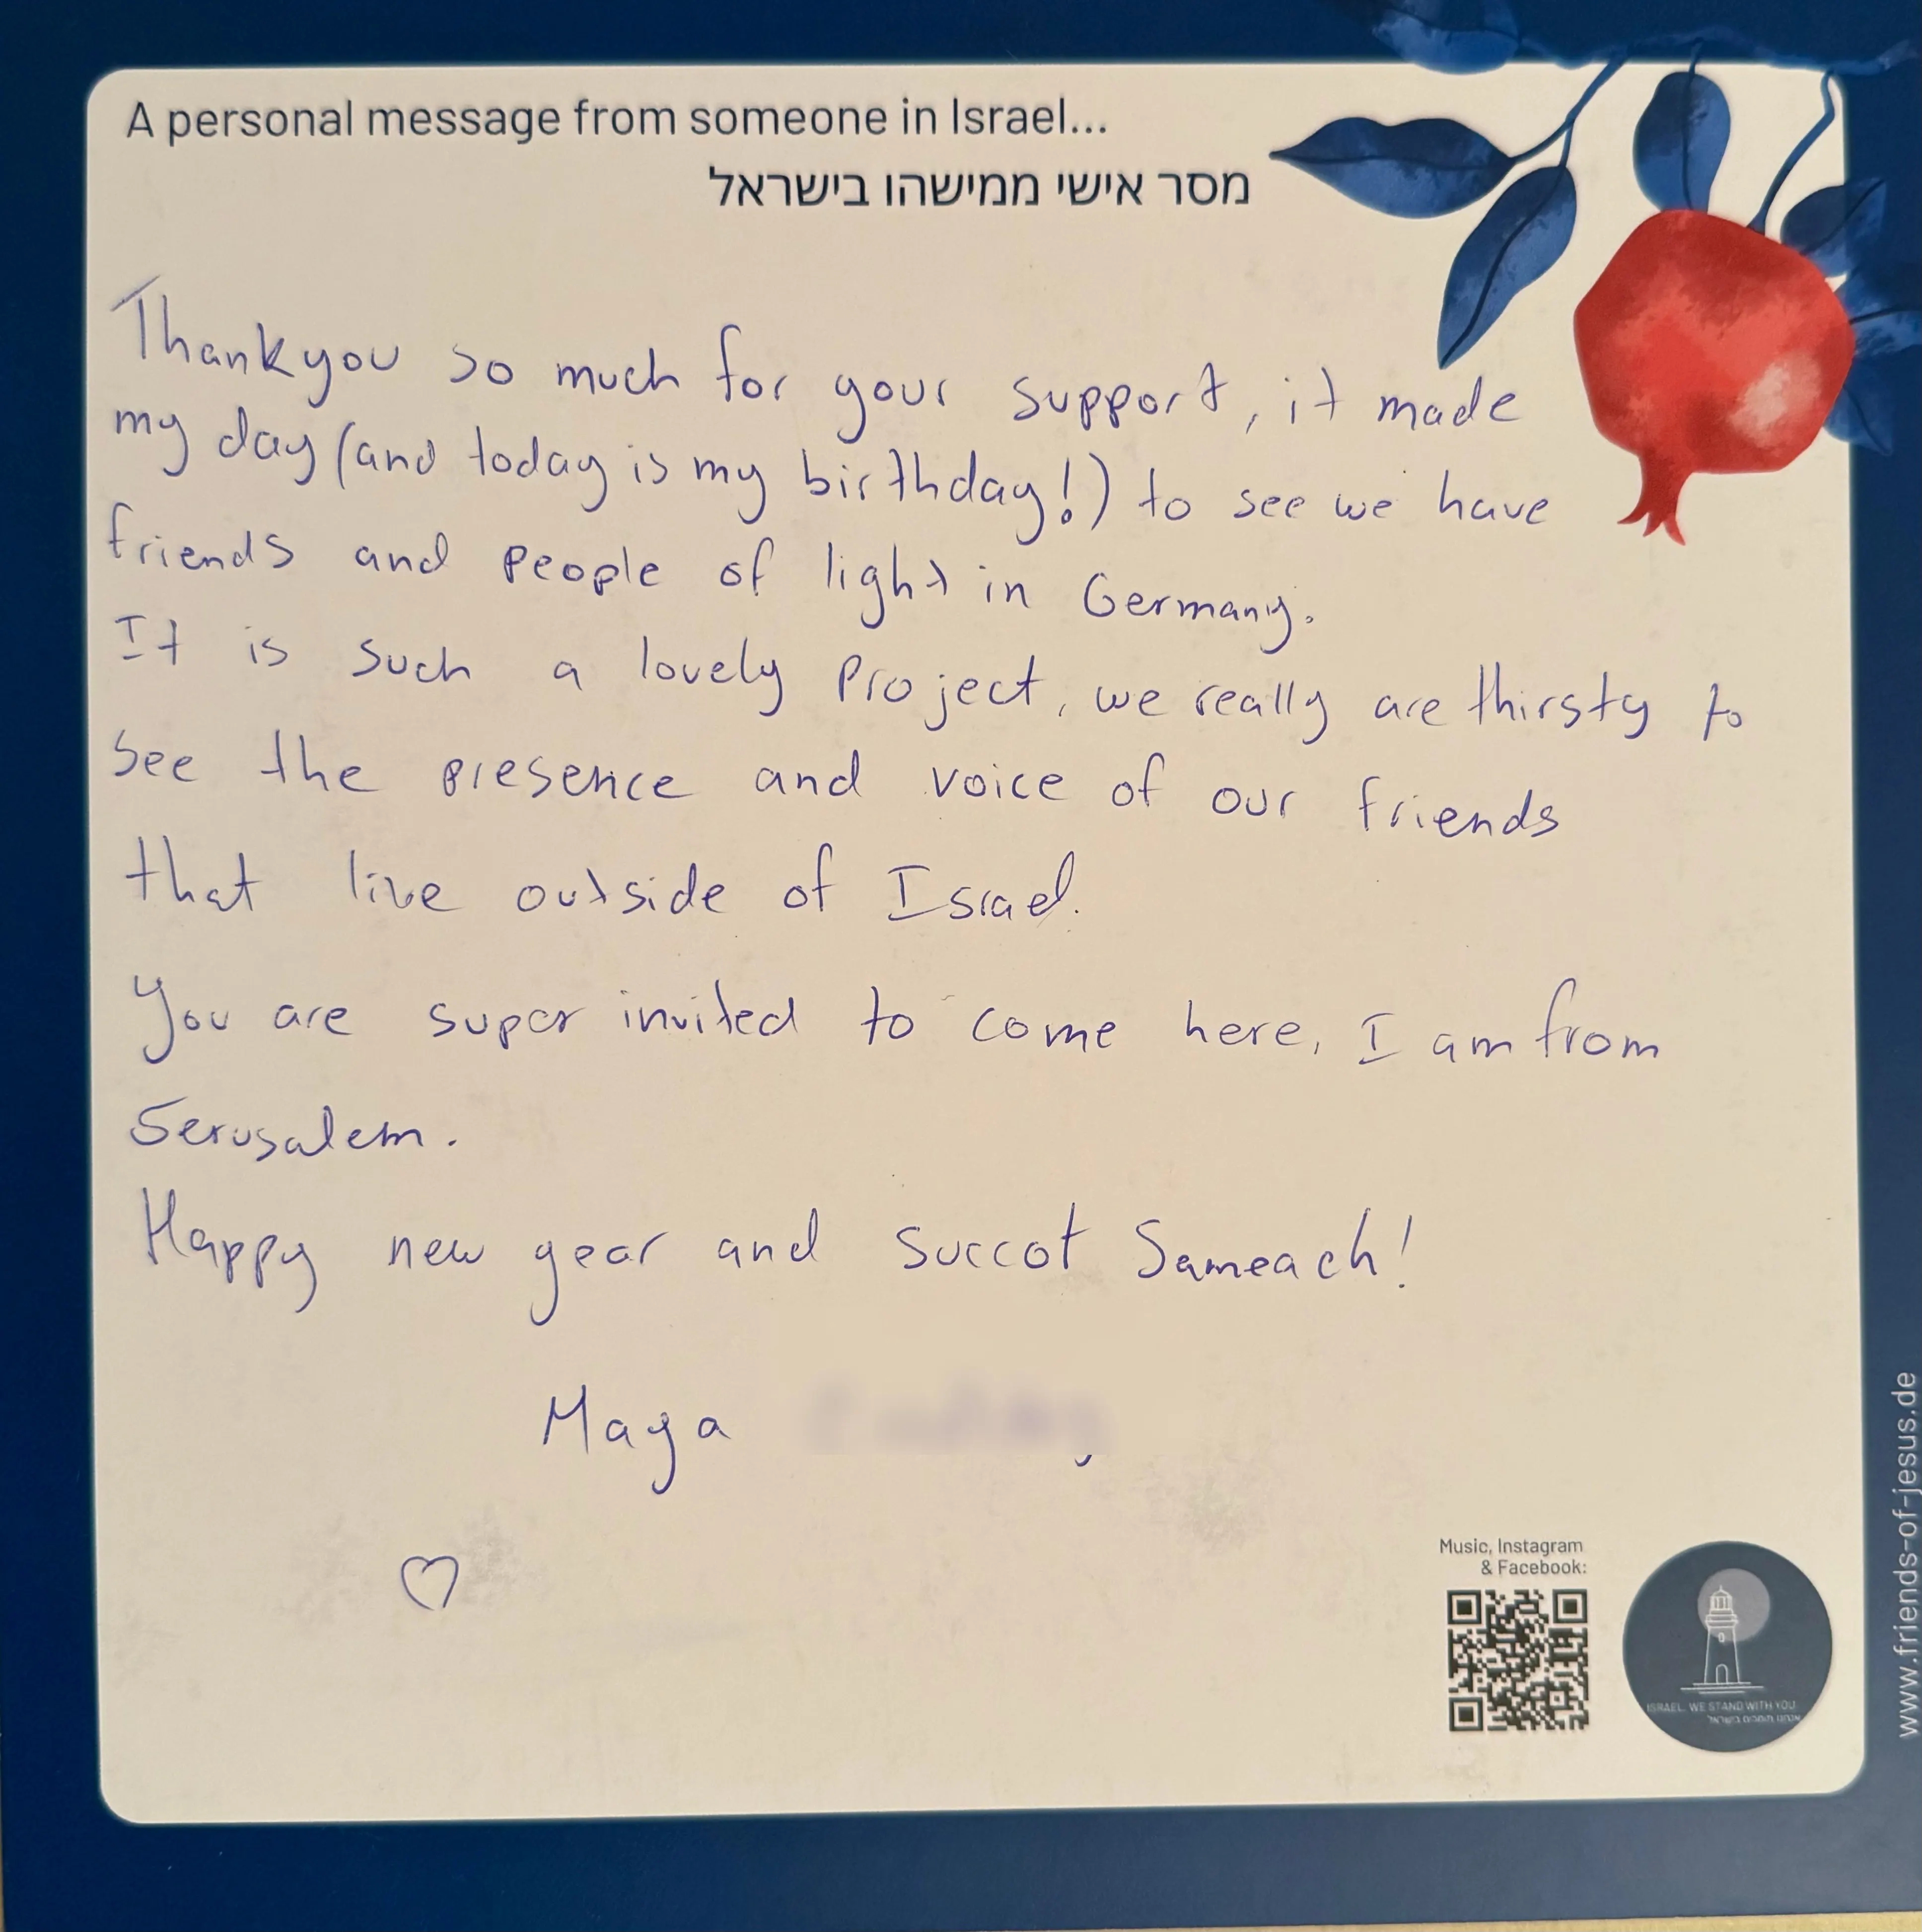 A personal message from someone in Israel...
מסר אישי ממישהו בישראל
Thank you so much for your support, it made
my day (and today is my birthday!) to see we have
friends and people of light in Germany.
It is such a lovely project, we really are thirsty to
see the presence and voice of our friends
that live outside of Israel.
You are super invited to come here, I am from
Jerusalem.
Happy new year and succot Sameach!
Maya
♡
Music, Instagram
& Facebook:
ISRAEL, WE STAND WITH YOU
www.friends-of-jesus.de